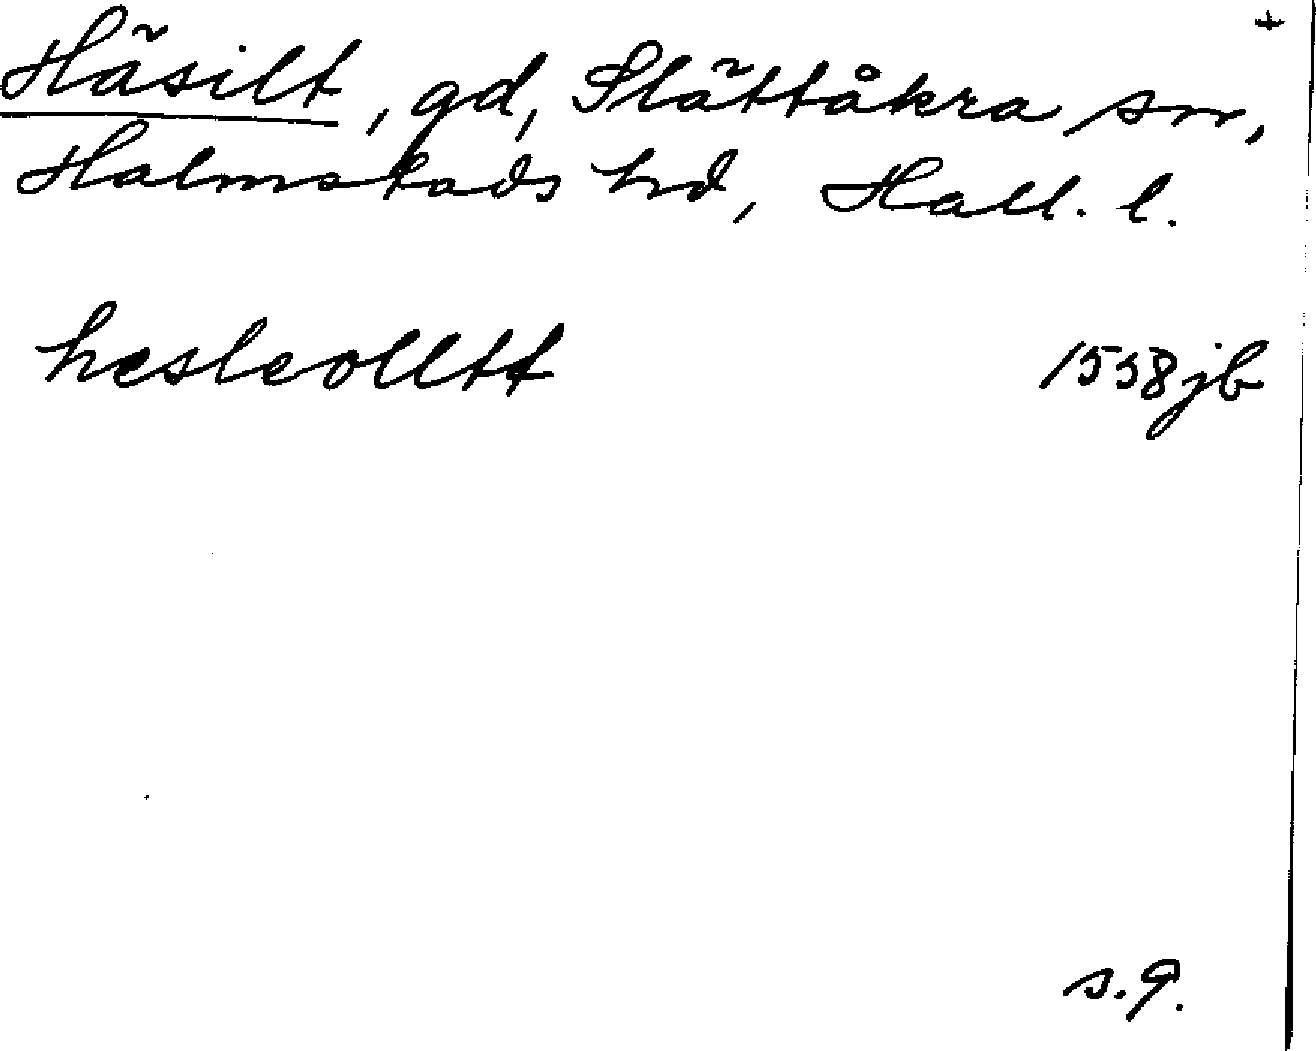 +
Häsilt, gd, Slättåkra sn,
Halmstads hd, Hall. l.
hesleolltt 1558 jb
s. 9.